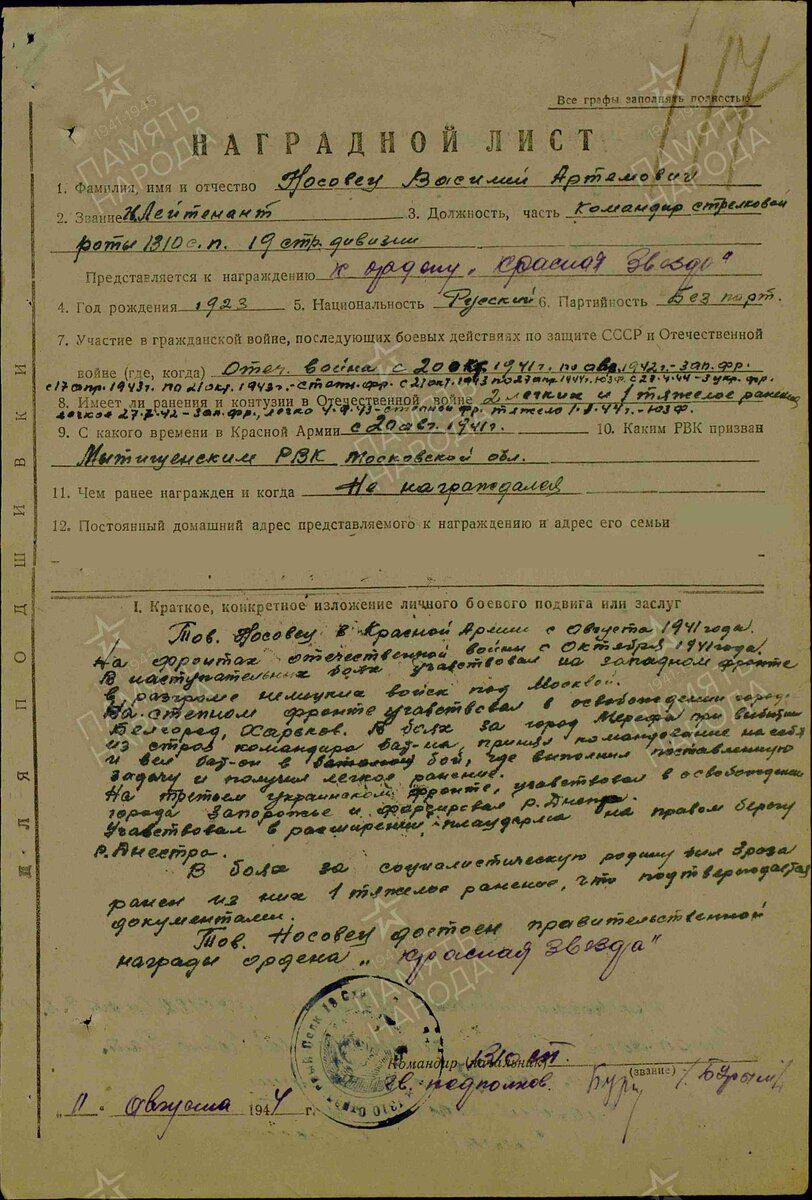 Все графы заполнять полностью
117
НАГРАДНОЙ ЛИСТ
1. Фамилия, имя и отчество Носовец Василий Артемович
2. Звание Лейтенант 3. Должность, часть Командир стрелковой
роты 1310 с.п. 19 стр. дивизии
Представляется к награждению к ордену „Красная Звезда"
4. Год рождения 1923 5. Национальность Русский 6. Партийность Без парт.
7. Участие в гражданской войне, последующих боевых действиях по защите СССР и Отечественной
войне (где, когда) Отеч. война с 20 окт. 1941г. по авг. 1942г.- зап. фр.
с 17 апр. 1943г. по 21 окт. 1943г.- степн. фр. с 21 окт. 1943 по 27 апр 1944г. Ю.З.Ф. С 27.4.44 - 3 укр. фр.
8. Имеет ли ранения и контузии в Отечественной войне 2 легких и 1 тяжелое ранения
легкое 27.8.42 - зап. фр., легко 4.9.43 - степной фр. тяжело 1.2.44г. - ЮЗФ.
9. С какого времени в Красной Армии с 20 авг. 1941г. 10. Каким РВК призван
Мытищенским РВК Московской обл.
11. Чем ранее награжден и когда Не награждался
12. Постоянный домашний адрес представляемого к награждению и адрес его семьи
I. Краткое, конкретное изложение личного боевого подвига или заслуг
Тов. Носовец в Красной Армии с Августа 1941 года.
На фронтах отечественной войны с Октября 1941 года.
В наступательных боях учавствовал на западном фронте
в разгроме немецких войск под Москвой.
На степном фронте учавствовал в освобождении города
Белгород, Харьков. В боях за город Мерефа при выбытии
из строя командира бат-на, принял командование на себя
и вел бат-он в бой, где выполнил поставленную
задачу и получил легкое ранение.
На третьем украинском фронте, учавствовал в освобождении
города Запорожье и форсировал р. Днепр.
Учавствовал в расширении плацдарма на правом берегу
р. Днестра.
В боях за социалистическую родину был 3 раза
ранен из них 1 тяжелое ранение, что подтверждается
документами.
Тов. Носовец достоен правительственной
награды ордена „Красная Звезда"
Командир (начальник) 1310 сп.
гв. подполков. (звание) /Бурый/
„11" Августа 1944 г.
ДЛЯ ПОДШИВКИ
1941-1945
ПАМЯТЬ
НАРОДА